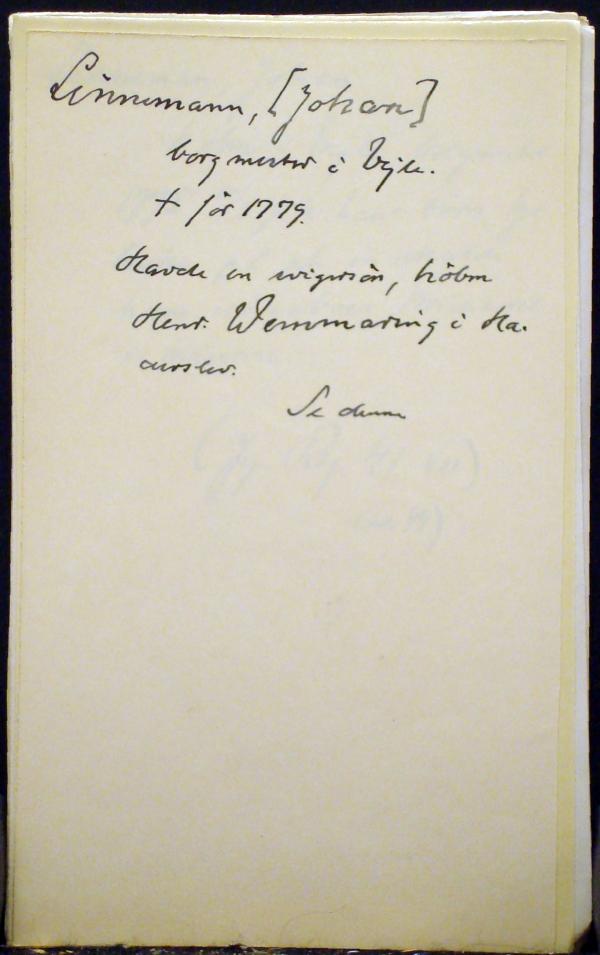 Linnemann, [Johan]
borgmester i Vejle.
† før 1779.
Havde en svigersøn, købm
Henr. Wemmaring i Ha-
derslev.
Se denne